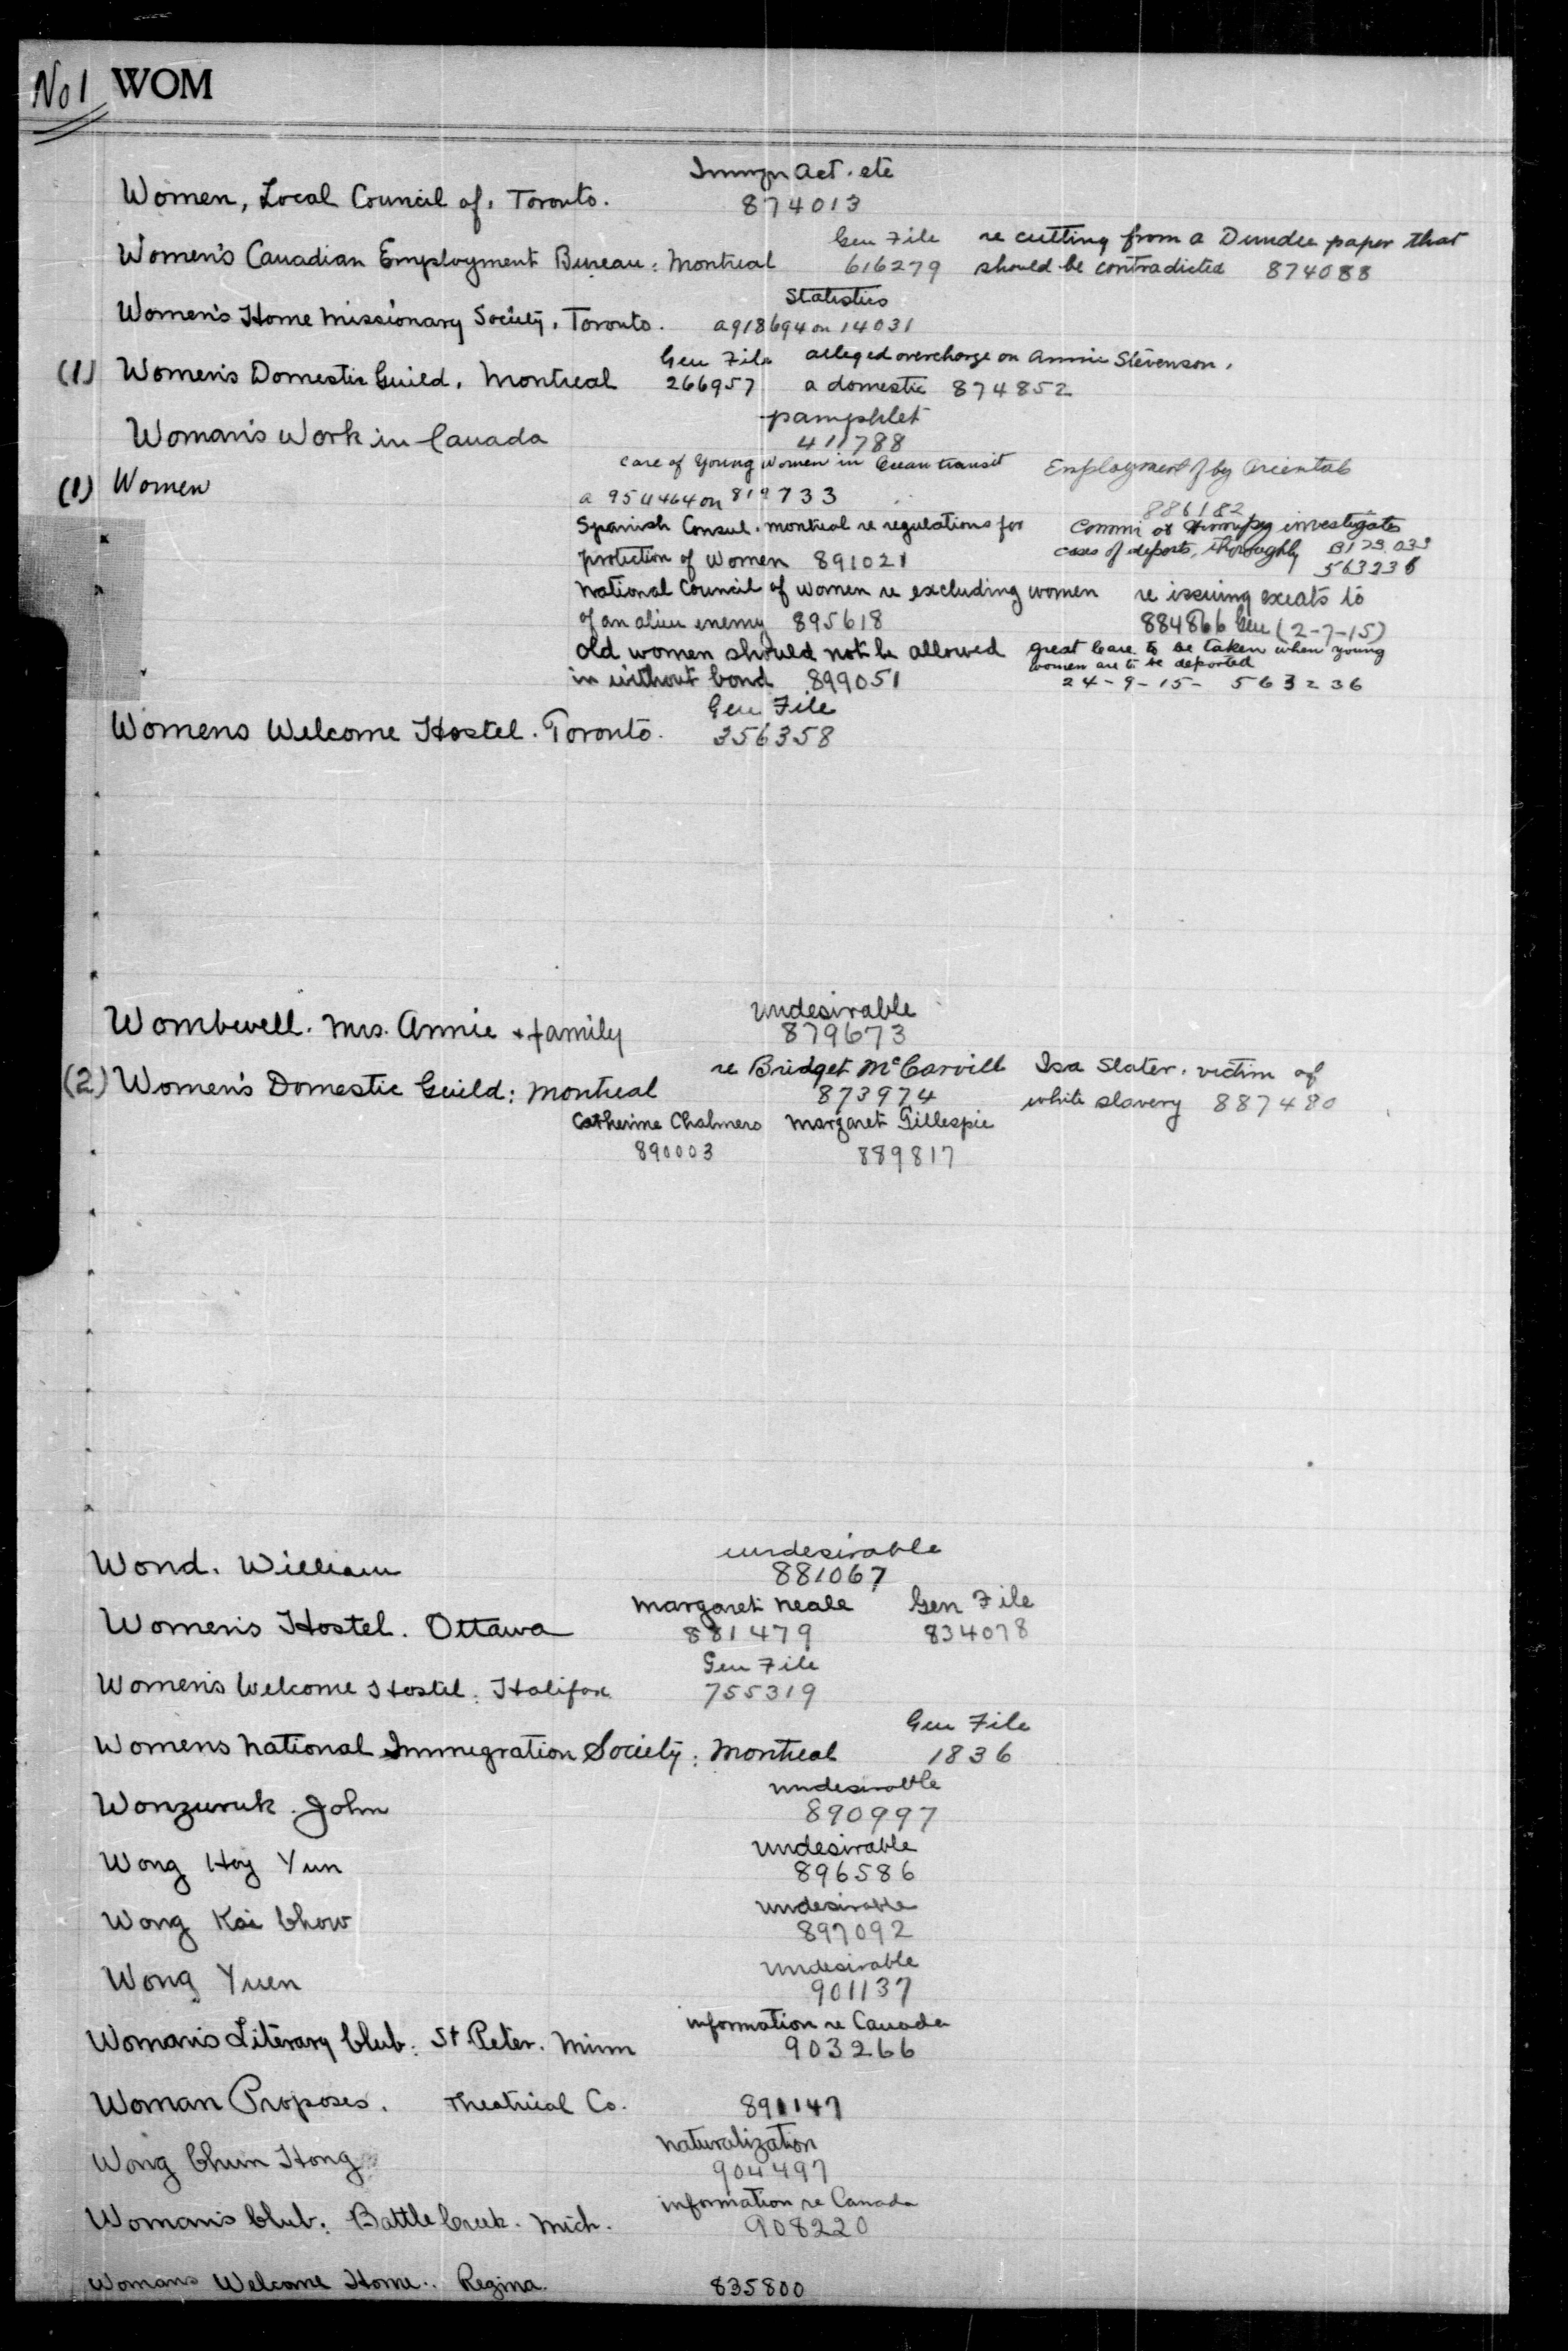 No 1 WOM
Immgn Act. etc
Women, Local Council of, Toronto. 874013
Gen File re cutting from a Dundee paper that
Women's Canadian Employment Bureau: Montreal 616279 should be contradicted 874088
Statistics
Women's Home Missionary Society, Toronto. a918694 on 14031
Gen File alleged overcharge on Annie Stevenson,
(1) Women's Domestic Guild, Montreal 266957 a domestic 874852
pamphlet
Woman's Work in Canada 411788
care of Young Women in Ocean transit Employment of by Orientals
(1) Women a 954464 on 819733 886182
Spanish Consul. Montreal re regulations for Commr at Winnipeg investigates
protection of Women 891021 cases of deports, thoroughly
563236
National Council of Women re excluding women re issuing exeats to
of an alien enemy 895618 884866 Gen (2-7-15)
Old women should not be allowed great care to be taken when young
women are to be deported
in without bond 899051 24-9-15- 563236
Gen File
Womens Welcome Hostel. Toronto. 356358
undesirable
Wombwell. Mrs. Annie & family 879673
re Bridget McCarvill Isa Slater. victim of
(2) Women's Domestic Guild: Montreal 873974 white slavery 887480
Catherine Chalmers Margaret Gillespie
890003 889817
undesirable
Wond. William 881067
Margaret Neale Gen File
Women's Hostel. Ottawa 881479 834078
Gen File
Women's Welcome Hostel: Halifax 755319
Gen File
Womens National Immigration Society: Montreal 1836
undesirable
Wonzuruk. John 890997
undesirable
Wong Hoy Yun 896586
undesirable
Wong Kai Chow 897092
undesirable
Wong Yuen 901137
information re Canada
Woman's Literary Club: St. Peter. Minn 903266
Woman Proposes. Theatrical Co. 891147
naturalization
Wong Chun Hong 904497
information re Canada
Woman's Club: Battle Creek. Mich. 908220
Womans Welcome Home: Regina. 835800